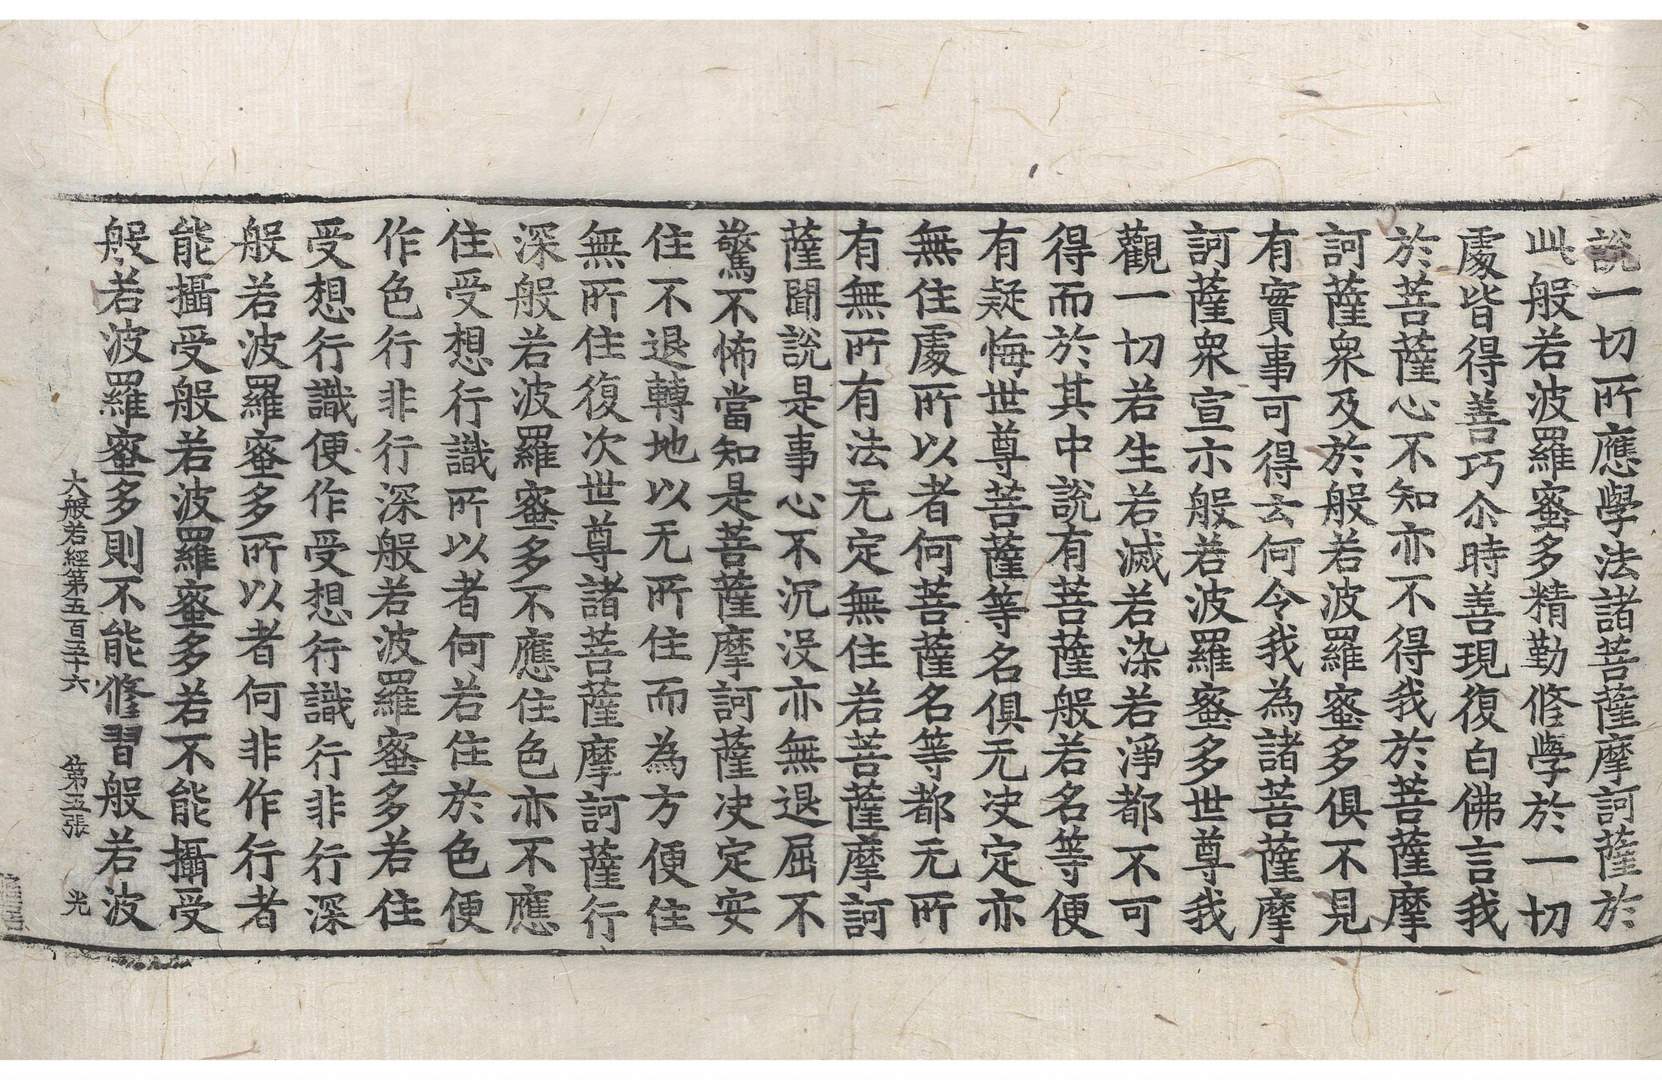 說一切所應學法諸菩薩摩訶薩於
此般若波羅蜜多精勤修學於一切
處皆得善巧尒時善現復白佛言我
於菩薩心不知亦不得我於菩薩摩
訶薩衆及於般若波羅蜜多俱不見
有實事可得云何令我為諸菩薩摩
訶薩衆宣示般若波羅蜜多世尊我
觀一切若生若滅若染若淨都不可
得而於其中說有菩薩般若名等便
有疑悔世尊菩薩等名俱无决定亦
無住處所以者何菩薩名等都无所
有無所有法无定無住若菩薩摩訶
薩聞說是事心不沉沒亦無退屈不
驚不怖當知是菩薩摩訶薩决定安
住不退轉地以无所住而為方便住
無所住復次世尊諸菩薩摩訶薩行
深般若波羅蜜多不應住色亦不應
住受想行識所以者何若住於色便
作色行非行深般若波羅蜜多若住
受想行識便作受想行識行非行深
般若波羅蜜多所以者何非作行者
能攝受般若波羅蜜多若不能攝受
般若波羅蜜多則不能修習般若波
大般若經第五百五十六 第五張 光